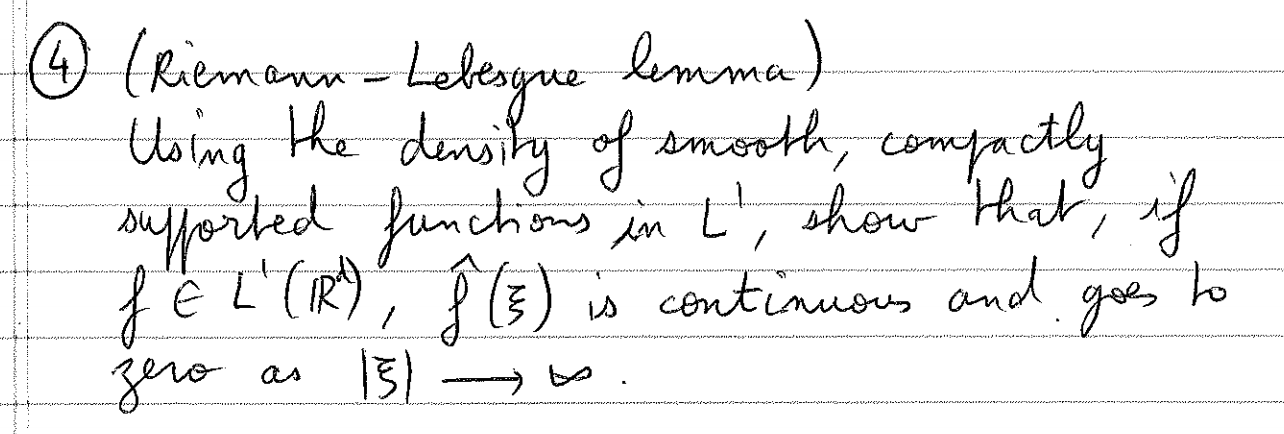 ④ (Riemann-Lebesgue lemma)
Using the density of smooth, compactly
supported functions in L¹, show that, if
f ∈ L¹(ℝᵈ), f̂(ξ) is continuous and goes to
zero as |ξ| ⟶ ∞.